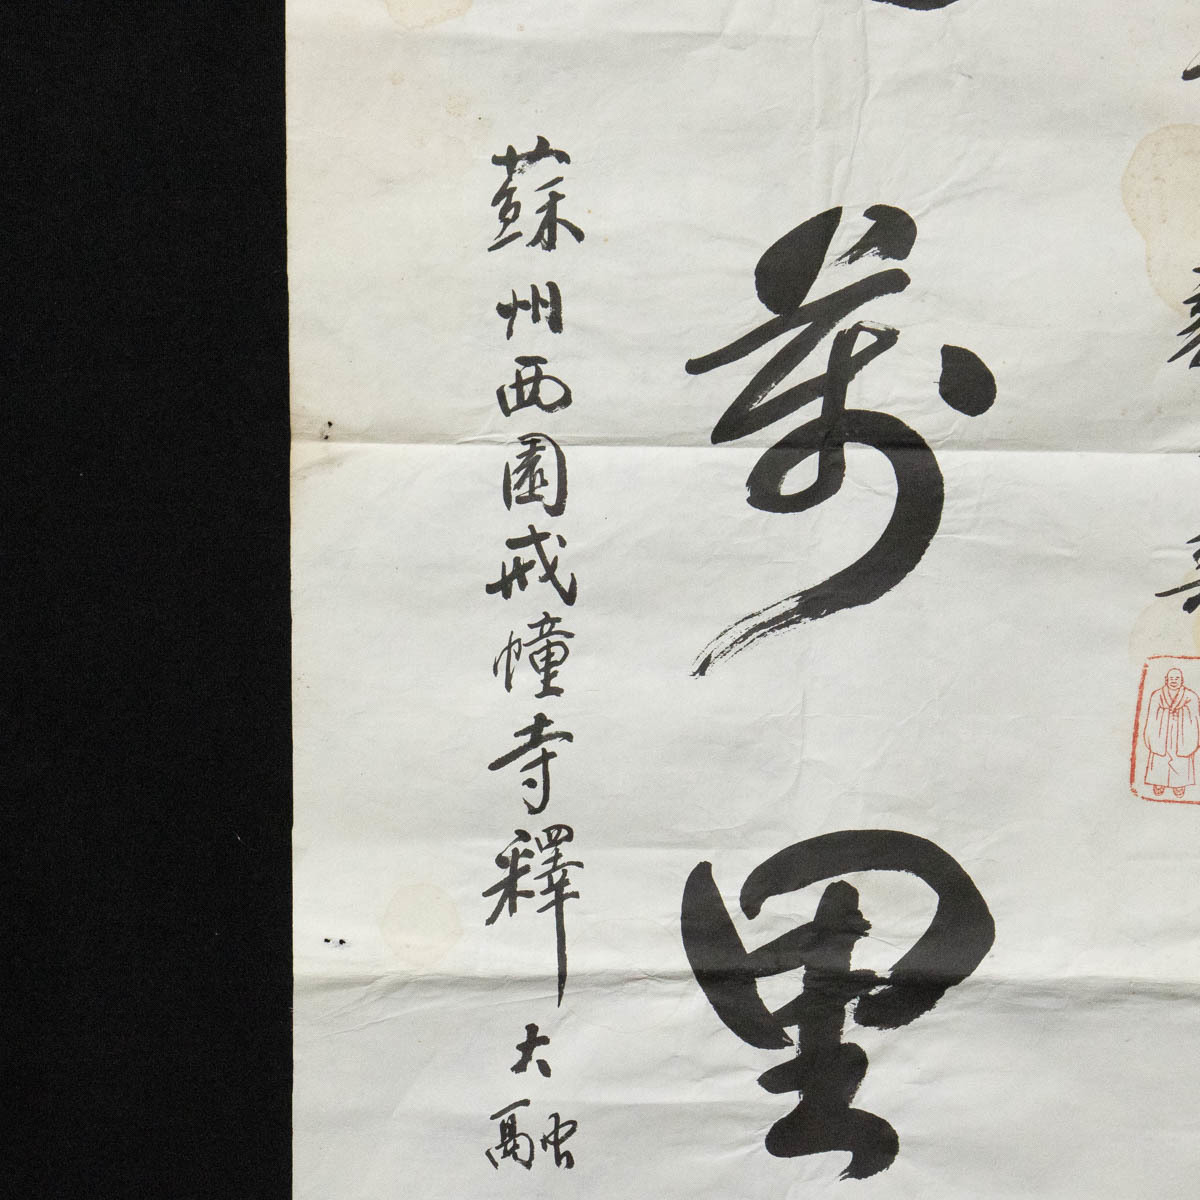 萬里
蘇州西園戒幢寺釋大融